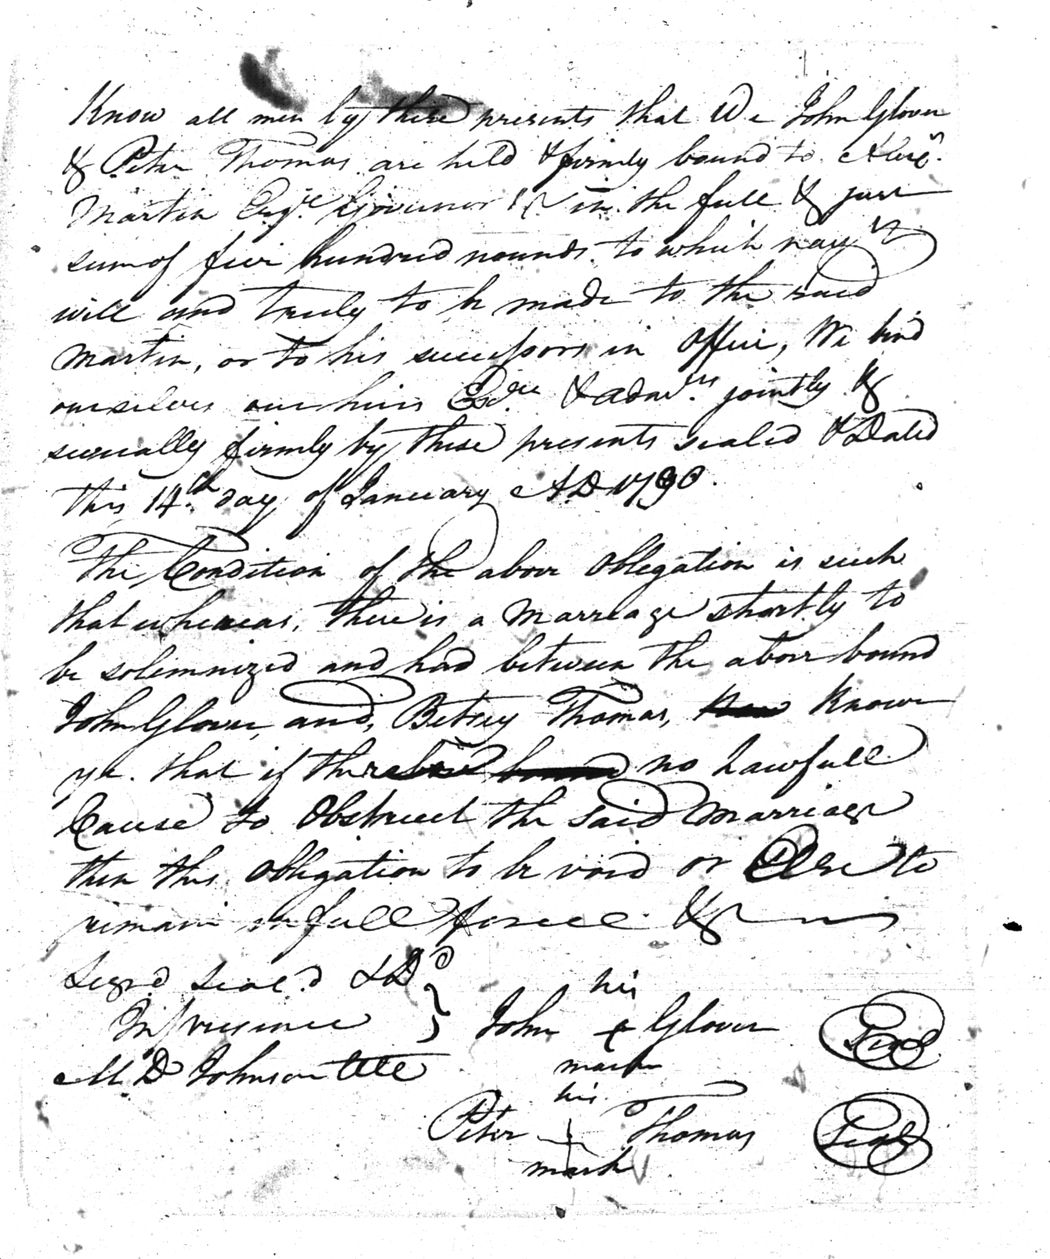 Know all men by these presents that We John Glover
& Peter Thomas are held & firmly bound to Alexr.
Martin Esqr. Governor &c in the full & just
sum of five hundred pounds. to which paymt
will and truly to be made to the said
Martin, or to his successors in office, We bind
ourselves our heirs & Admrs. jointly &
severally firmly by these presents sealed & Dated
this 14th day of January A.D 1790.
The Condition of the above Obligation is such
that whereas, there is a Marreage shortly to
be solemnized and had between the above bound
John Glover, and, Betsey Thomas, Know
ye. that if there no Lawfull
Cause to Obstruct the said Marriage
then this Obligation to be void or Else to
remain in full force &
Sign'd Seal'd & Dd
In presence
M. D Johnson
his
John + Glover Seal
mark
his
Peter Thomas Seal
mark